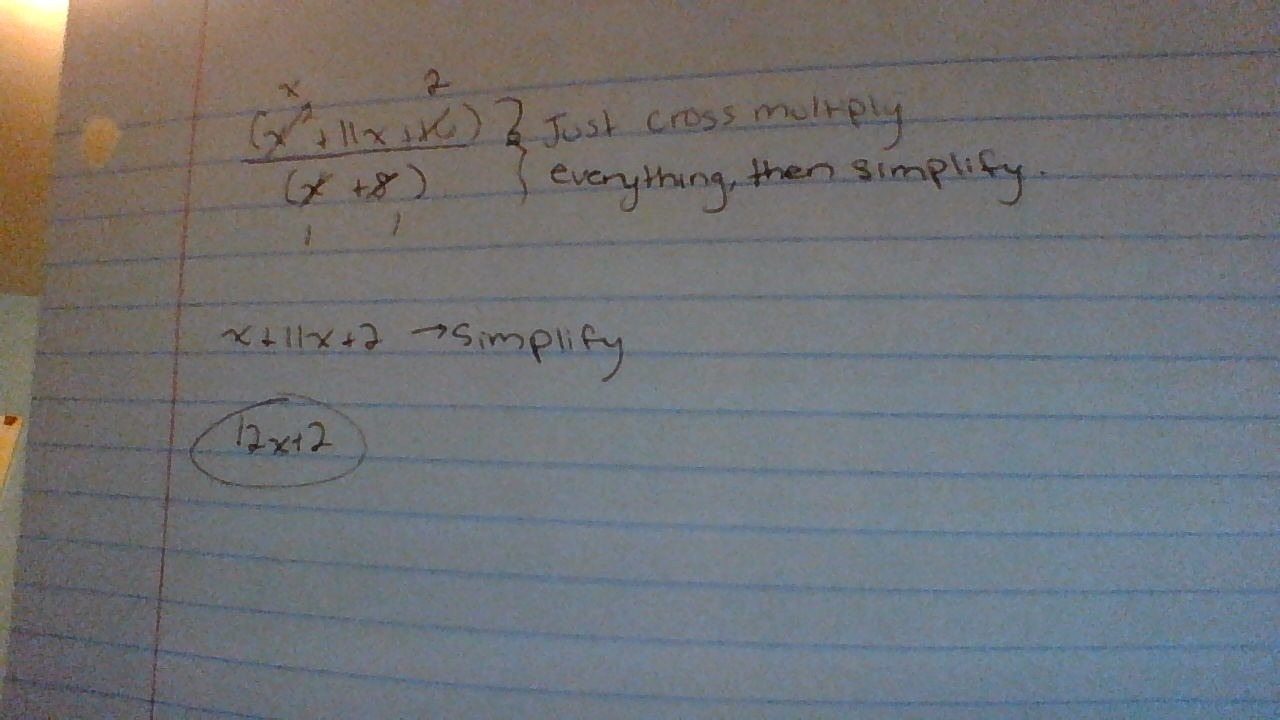 x 2
(x² + 11x + 16) } Just cross multiply
(x + 8) everything, then simplify.
1 1
x + 11x + 2 → simplify
12x + 2